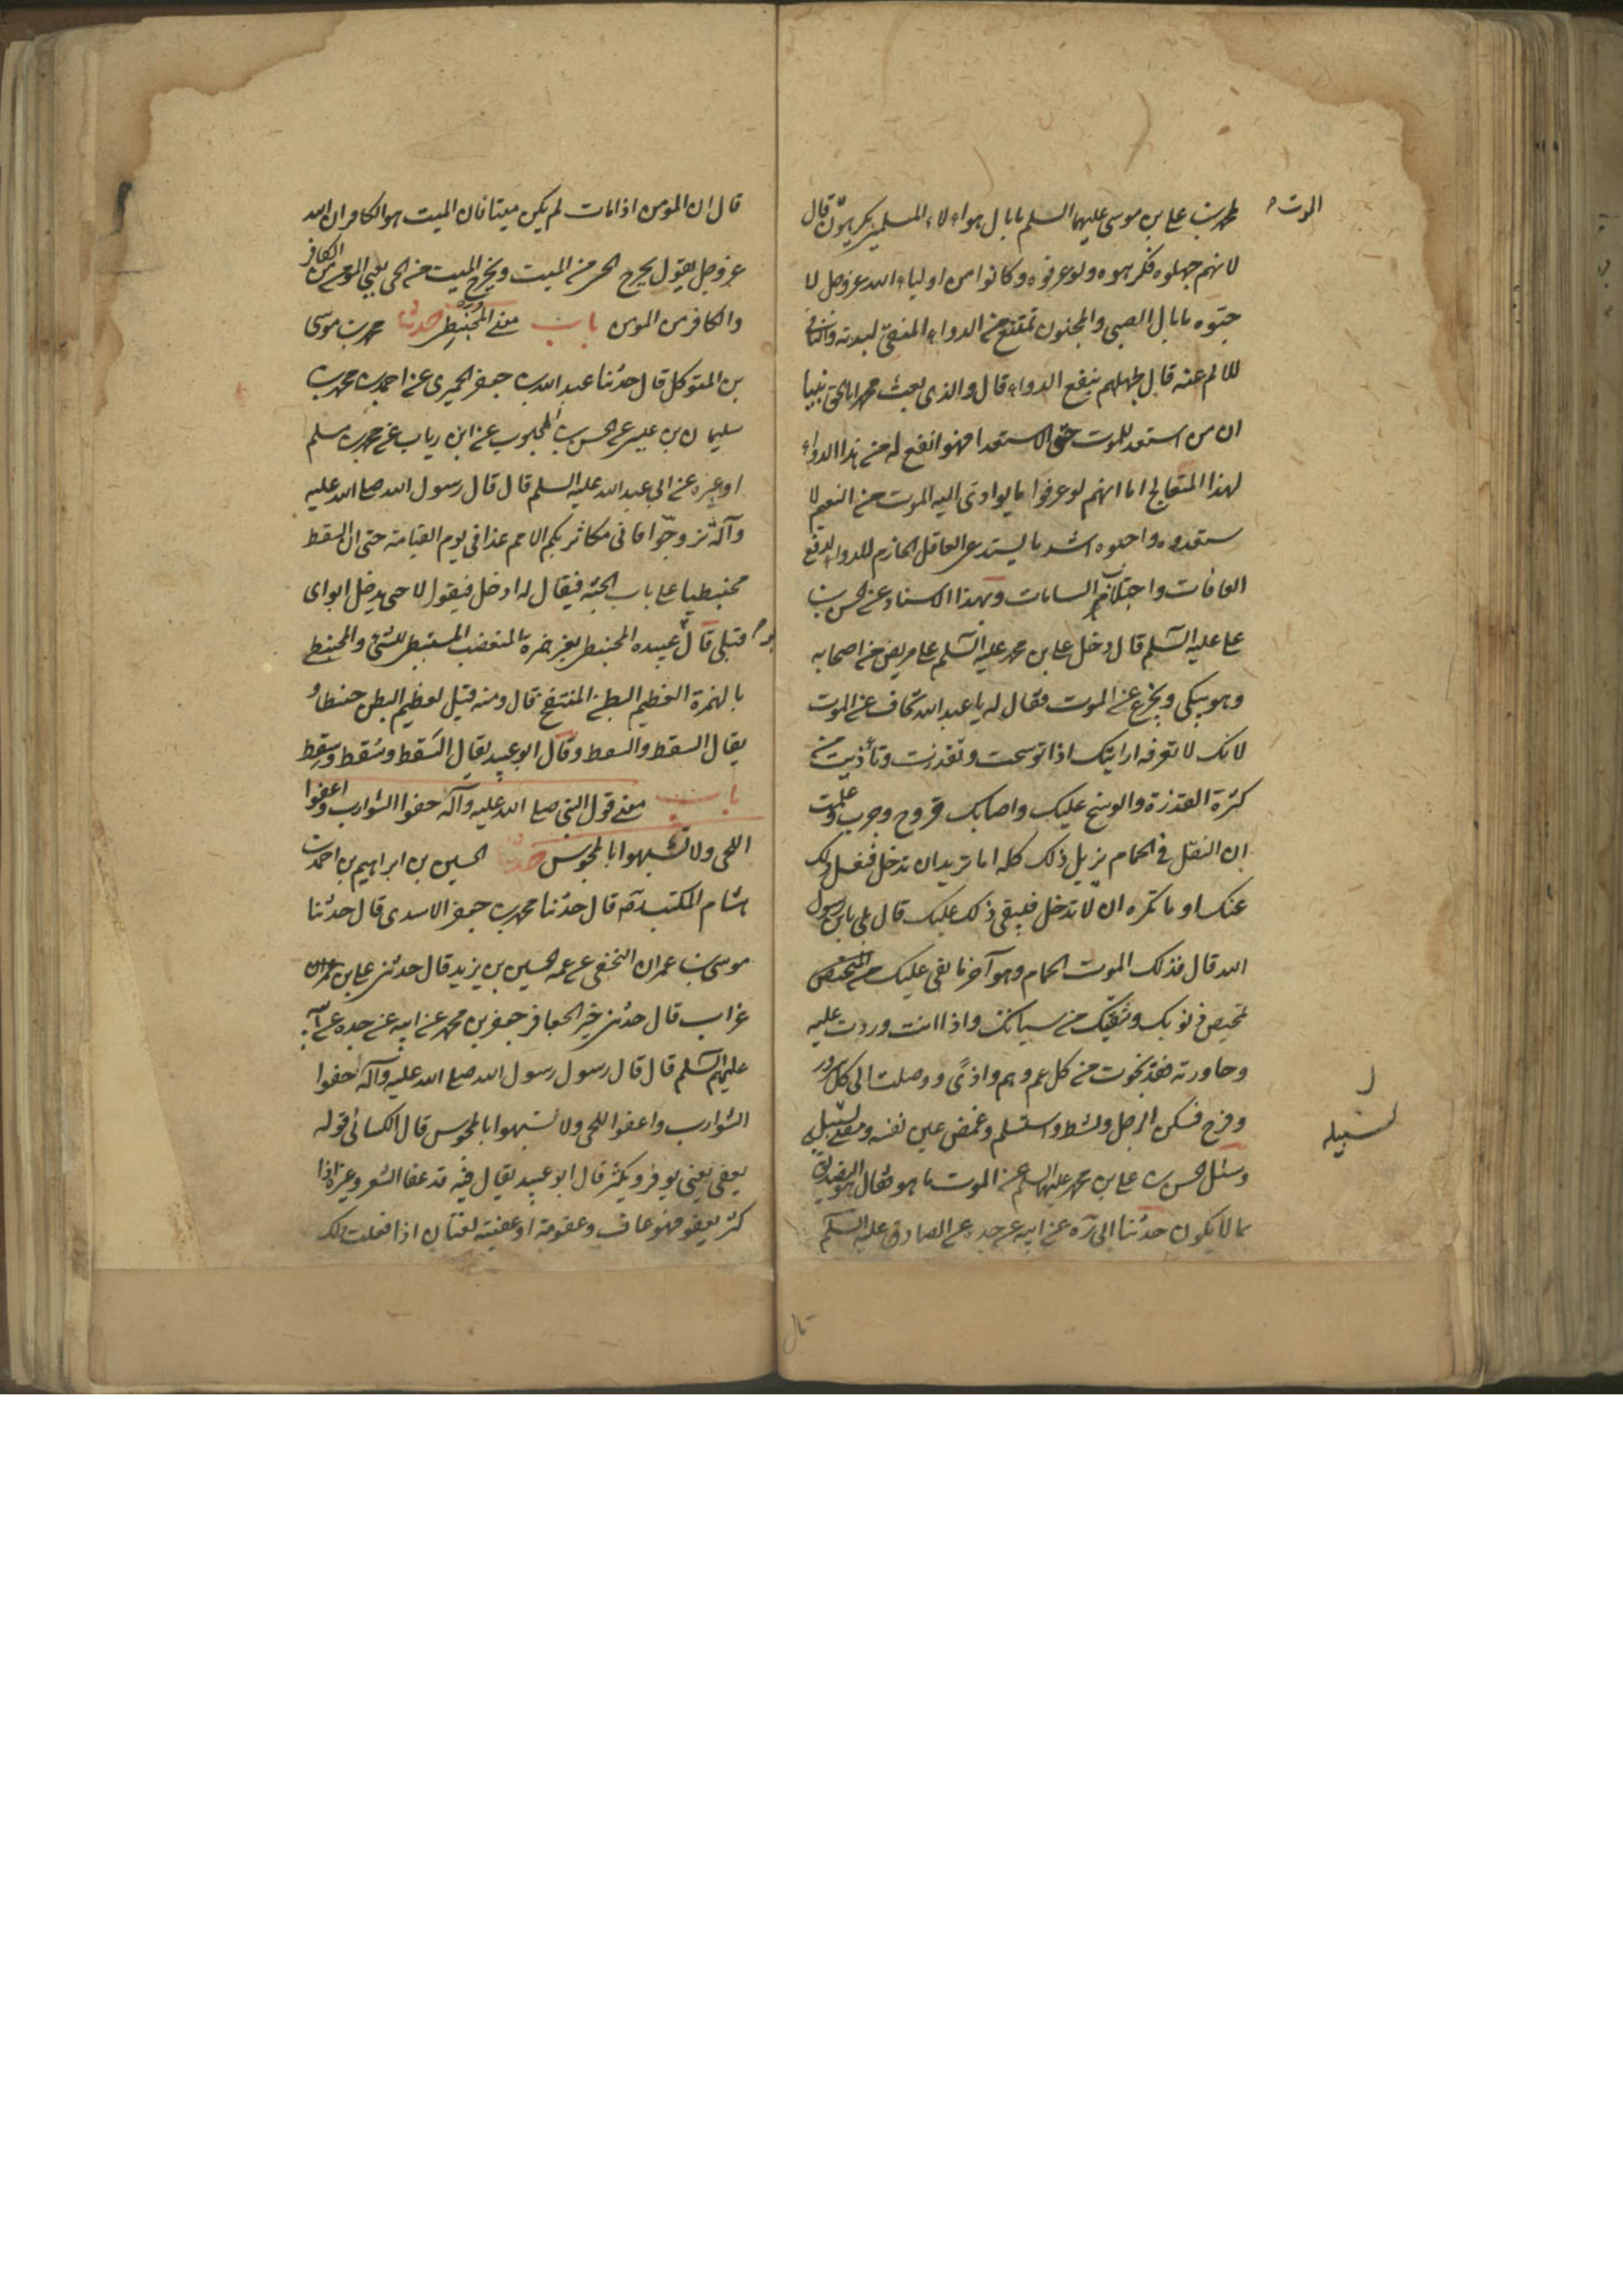 لمحمد بن على بن موسى عليهما السلم ما بال هولاء المسلمين يكرهون قال
الموت
لانهم جهلوه فكرهوه ولو عرفوه وكانوا من اولياء الله عز وجل لا
حبوه ما بال الصبى والمجنون تمتنع من الدواء المنقى لبدنه والنافى
للالم عنه قال لجهلهم بنفع الدواء قال والذى بعث محمدا بالحق نبيا
ان من استعد للموت حق الاستعدا فهو انفع له من هذا الدواء
لهذا المتعالج اما انهم لو عرفوا ما يوادى اليه الموت من النعيم لا
ستعدوه واحبوه اشد ما يستدعى العاقل الحازم للدواء لدفع
العافات واجتلاب السلامات وبهذا الاسناد عن الحسن بن
على عليه السلم قال دخل على بن محمد عليه السلم على مريض من اصحابه
وهو يبكى ويجزع عن الموت فقال له يا عبد الله تخاف عن الموت
لانك لا تعرفه ارايتك اذا توسخت وتقذرت وتأذيت من
كثرة القذرة والوسخ عليك واصابك قروح وجرب وعلمت
ان الغسل فى الحمام يزيل ذلك كله اما تريد ان تدخل فتغسل ذلك
عنك او ما تكره ان لا تدخل فيبقى ذلك عليك قال بلى يا بن رسول
الله قال فذلك الموت الحمام وهو آخر ما بقى عليك من
تمحيص ذنوبك وتنقيك من سياتك واذا انت وردت عليه
وجاورته فقد نجوت من كل غم وهم واذى ووصلت الى كل سرور
وفرح فسكن الرجل ونشط واستسلم وغمض عين نفسه ومضى لسبيله
ل
لسبيله
وسئل الحسن بن على بن محمد عليهما السلم عن الموت ما هو فقال هو التصديق
بما لا يكون حدثنا ابى ره عن ابيه عن جده عن الصادق عليه السلم
قال
قال ان المومن اذا مات لم يكن ميتا فان الميت هو الكافر ان الله
عز وجل يقول يخرج الحى من الميت ويخرج الميت من الحى يعنى المومن من الكافر
والكافر من المومن باب معنى المحبنطى حدثنا محمد بن موسى
بن المتوكل قال حدثنا عبد الله بن جعفر الحميرى عن احمد بن محمد بن
سليمان بن عيسى عن الحسن بن المحبوب عن ابن رياب عن محمد بن مسلم
او غيره عن ابى عبد الله عليه السلم قال قال رسول الله صلى الله عليه
وآله تزوجوا فانى مكاثر بكم الامم غدا فى يوم القيامة حتى ان السقط
محبنطيا على باب الجنة فيقال له ادخل فيقول لا حتى يدخل ابواى
قبلى قال عبيده المحبنطى بغير همزة المتغضب المستبطى للشئ والمحبنط
بالهمزة العظيم البطن المنتفخ قال ومنه قيل لعظيم البطن حبنطاء
يقال السقط والسقط وقال ابو عبيد يقال السَقط وسُقط وسِقط
باب معنى قول النبى صلى الله عليه وآله حفوا الشوارب واعفوا
اللحى ولا تشبهوا بالمجوس حدثنا الحسين بن ابراهيم بن احمد بن
هشام المكتب ره قال حدثنا محمد بن جعفر الاسدى قال حدثنا
موسى بن عمران النخعى عن عمه الحسين بن يزيد قال حدثنى على بن
غراب قال حدثنى خير الجعافر جعفر بن محمد عن ابيه عن جده عن ابيه
عليهم السلم قال قال رسول رسول الله صلى الله عليه وآله احفوا
الشوارب واعفوا اللحى ولا تشبهوا بالمجوس قال الكسائى قوله
يعفى يعنى يوفر ويكثر قال ابو عبيد يقال فيه قد عفا الشعر وغيره اذا
كثر يعفو فهو عاف وعفوته او عفيته لغتان اذا فعلت ذلك